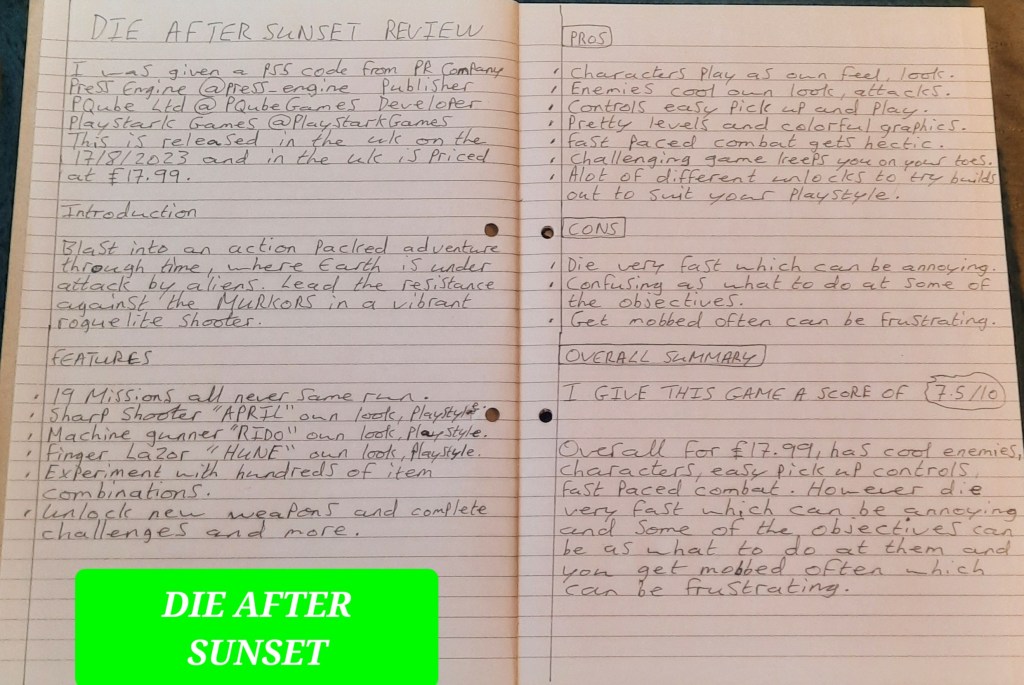 DIE AFTER SUNSET REVIEW
I was given a PS5 code from PR Company
Press Engine @press_engine Publisher
PQube Ltd @PQubeGames Developer
Playstark Games @PlayStarkGames
This is released in the uk on the
17/8/2023 and in the uk is priced
at £17.99.
Introduction
Blast into an action packed adventure
through time, where Earth is under
attack by aliens. Lead the resistance
against the MURKORS in a vibrant
roguelite shooter.
FEATURES
• 19 Missions all never same run.
• Sharp Shooter "APRIL" own look, Playstyle.
• Machine gunner "RIDO" own look, Playstyle.
• Finger Lazor "HUNE" own look, Playstyle.
• Experiment with hundreds of item
combinations.
• Unlock new weapons and complete
challenges and more.
DIE AFTER
SUNSET
PROS
• Characters play as own feel, look.
• Enemies cool own look, attacks.
• Controls easy pick up and play.
• Pretty levels and colorful graphics.
• Fast paced combat gets hectic.
• Challenging game keeps you on your toes.
• Alot of different unlocks to try builds
out to suit your playstyle.
CONS
• Die very fast which can be annoying.
• Confusing as what to do at some of
the objectives.
• Get mobbed often can be frustrating.
OVERALL SUMMARY
I GIVE THIS GAME A SCORE OF 7.5/10
Overall for £17.99, has cool enemies,
characters, easy pick up controls,
fast paced combat. However die
very fast which can be annoying
and some of the objectives can
be as what to do at them and
you get mobbed often which
can be frustrating.